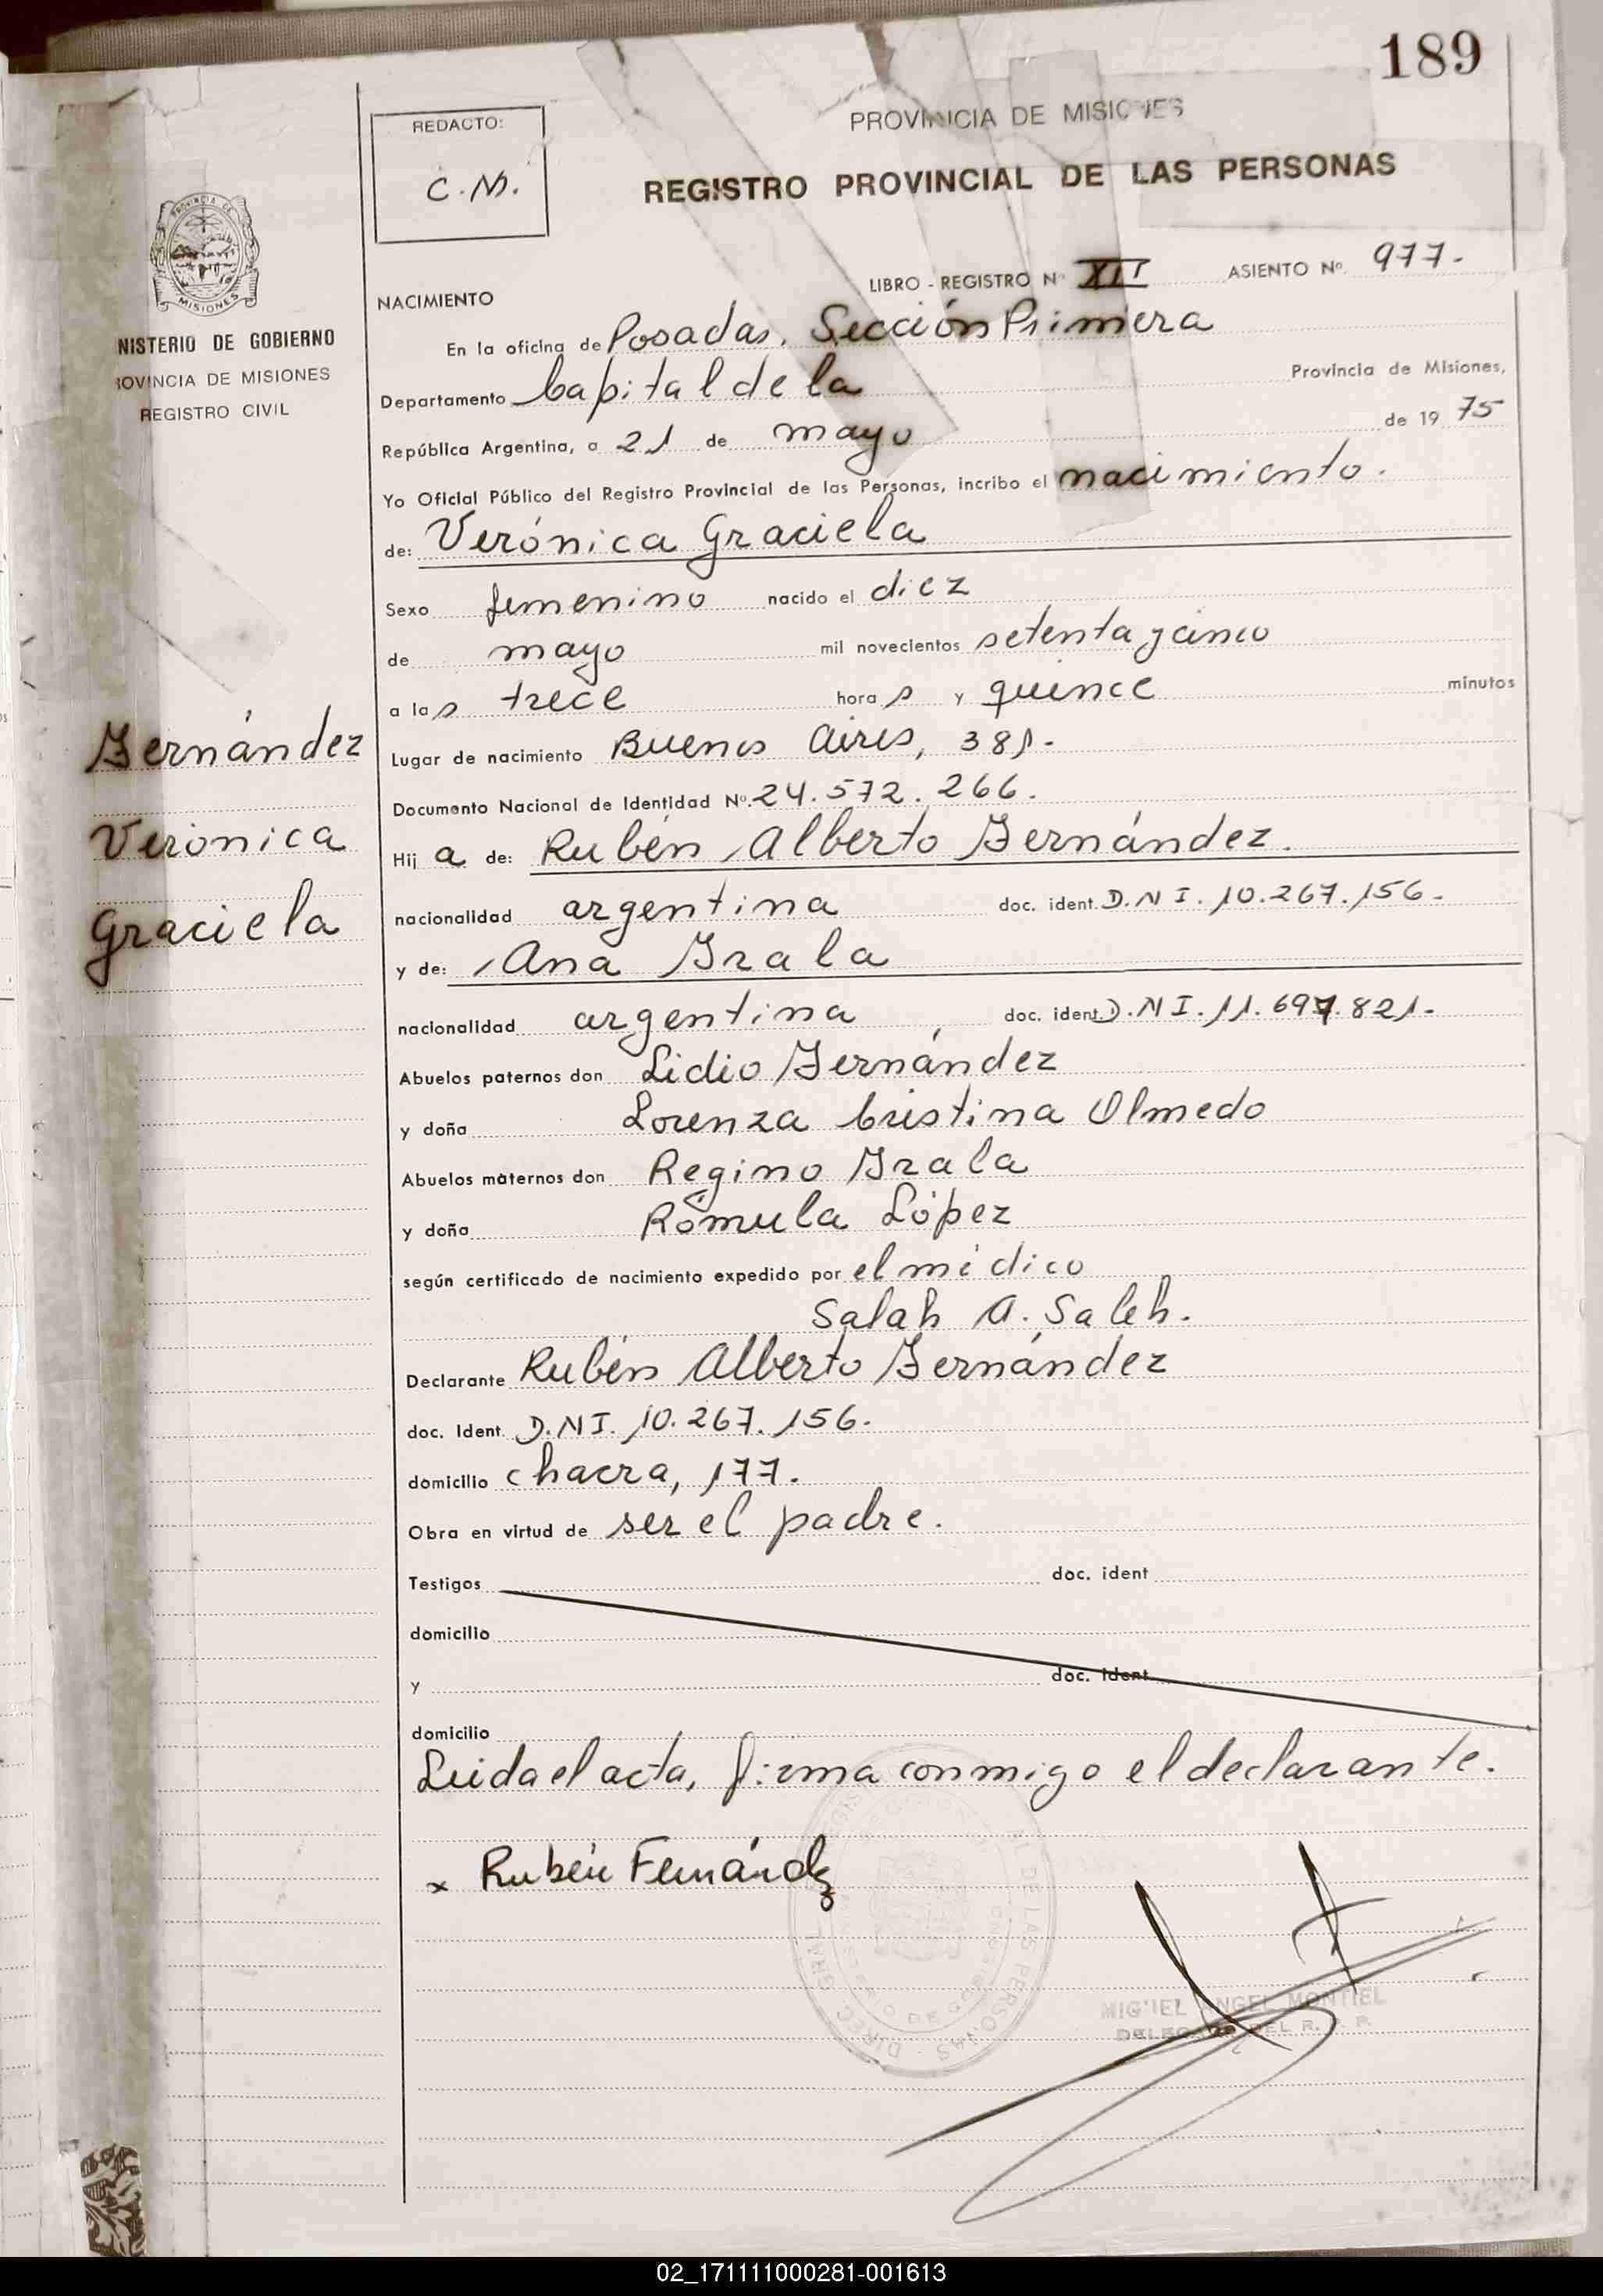 189
REDACTO:
C.M.
PROVINCIA DE MISIONES
REGISTRO PROVINCIAL DE LAS PERSONAS
LIBRO - REGISTRO Nº XII ASIENTO Nº. 977.-
MISIONES
NISTERIO DE GOBIERNO
ROVINCIA DE MISIONES
REGISTRO CIVIL
NACIMIENTO
En la oficina de Posadas, Sección Primera
Departamento Capital de la Provincia de Misiones,
República Argentina, a 21 de mayo de 19 75
Yo Oficial Público del Registro Provincial de las Personas, incribo el nacimiento.
de: Verónica Graciela
Sexo femenino nacido el diez
de mayo mil novecientos setenta y cinco
a las trece horas y quince minutos
Fernández
Verónica
Graciela
Lugar de nacimiento Buenos Aires, 381.-
Documento Nacional de Identidad Nº. 24.572.266.
Hija de: Rubén Alberto Fernández.
nacionalidad argentina doc. ident. D.N.I. 10.267.156.-
y de: Ana Irala
nacionalidad argentina doc. ident. D.N.I. 11.697.821.-
Abuelos paternos don Lidio Fernández
y doña Lorenza Cristina Olmedo
Abuelos maternos don Regino Irala
y doña Rómula López
según certificado de nacimiento expedido por el médico
Salah A. Saleh.
Declarante Rubén Alberto Fernández
doc. Ident. D.N.I. 10.267.156.
domicilio chacra, 177.
Obra en virtud de ser el padre.
Testigos doc. ident
domicilio
y doc. ident
domicilio
Leida el acta, firma conmigo el declarante.
x Rubén Fernández
MIGUEL ANGEL MONTIEL
DELEGADO DEL R. P. P.
02_171111000281-001613